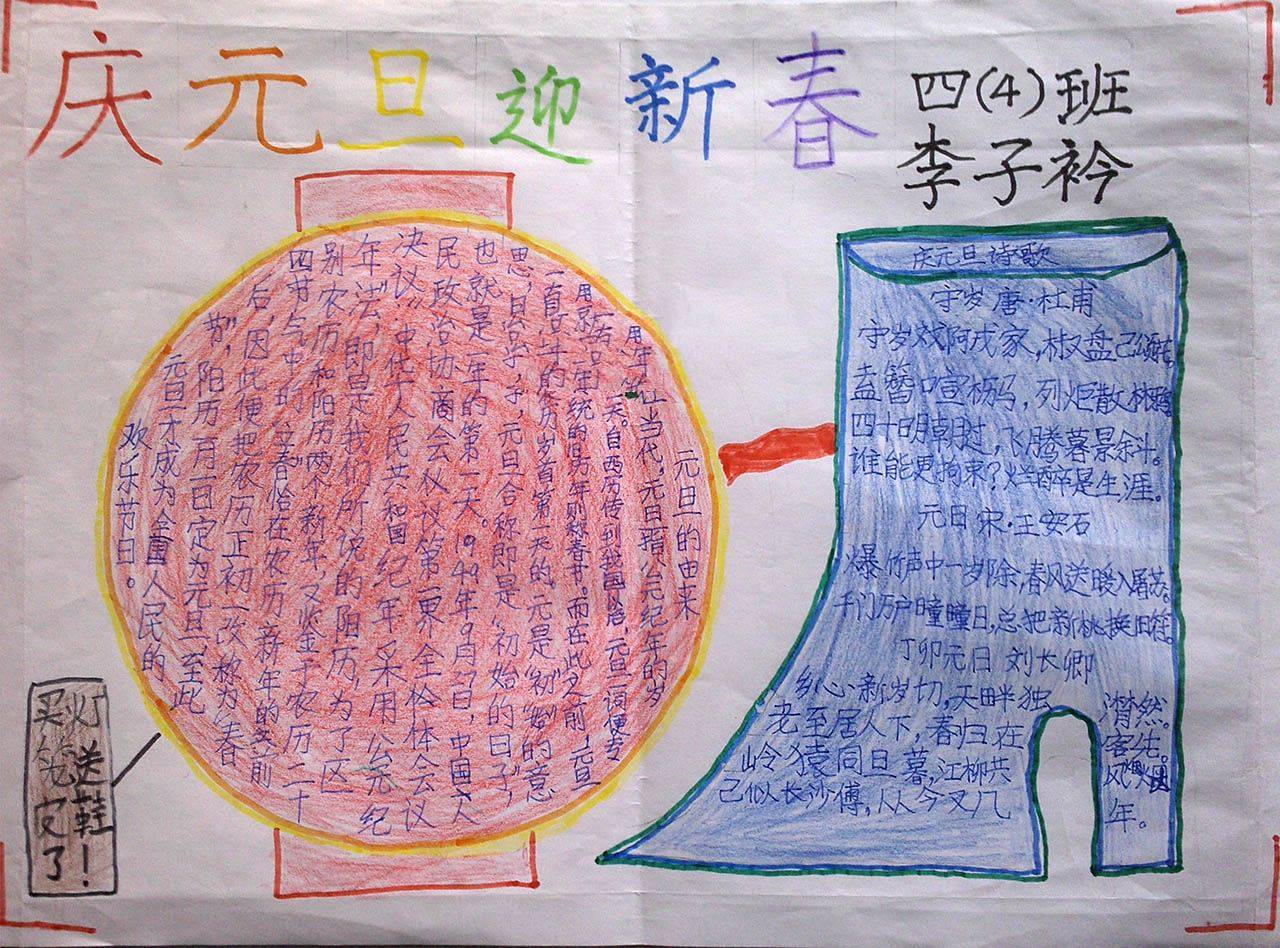 庆元旦迎新春
四(4)班
李子衿
元旦的由来
在当代，元旦指公元纪年的岁
首第一天。自西历传到我国后，元旦一词便专
用于
一直是
思，旦合子，子，元旦合称即是“初始的日子”，
也就是一年的第一天。1949年9月27日，中国人
民政治协商会议第一届全体会议
决议“中华人民共和国纪年采用公元纪
年法”，即是我们所说的阳历，为了区
别农历和阳历两个新年，又鉴于农历二十
四节气中的“立春”恰在农历新年的前
后，因此便把农历正初一改称为“春
节”，阳历一月一日定为元旦，至此
元旦才成为全国人民的
欢乐节日。
庆元旦诗歌
守岁 唐·杜甫
守岁戏阿戎家，椒盘已颂花，
盍簪喧枥马，列炬散林鸦
四十明朝过，飞腾暮景斜。
谁能更拘束？烂醉是生涯。
元日 宋·王安石
爆竹声中一岁除，春风送暖入屠苏。
千门万户曈曈日，总把新桃换旧符。
丁卯元日 刘长卿
乡心新岁切，天畔独潸然。
老至居人下，春归在客先。
岭猿同旦暮，江柳共风烟
己似长沙傅，从今又几年。
买灯
笼送
鞋
了！